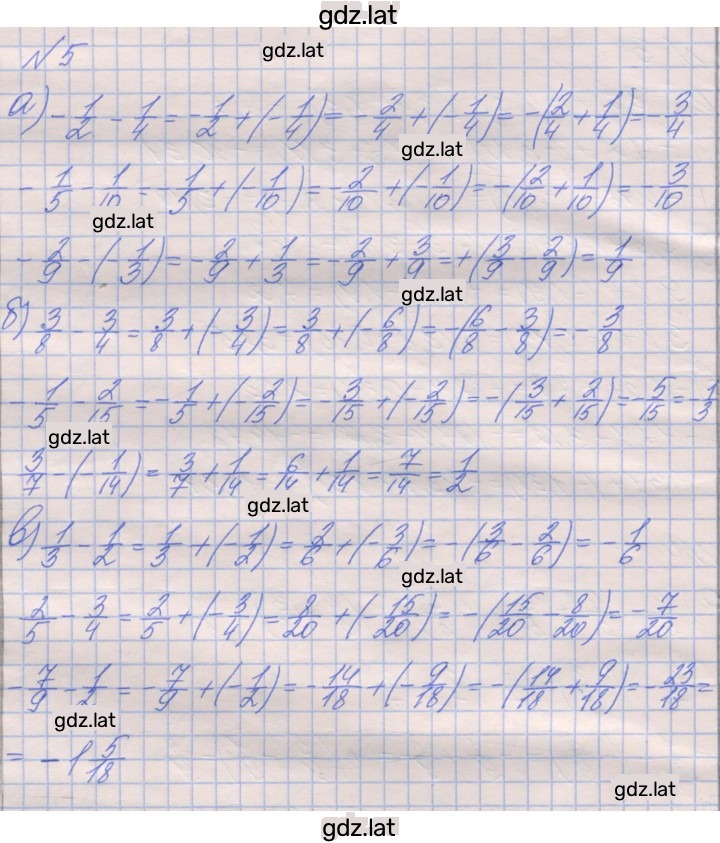 gdz.lat
gdz.lat
№ 5
а) -1/2 - 1/4 = -1/2 + (-1/4) = -2/4 + (-1/4) = -(2/4 + 1/4) = -3/4
gdz.lat
-1/5 - 1/10 = -1/5 + (-1/10) = -2/10 + (-1/10) = -(2/10 + 1/10) = -3/10
gdz.lat
-2/9 - (-1/3) = -2/9 + 1/3 = -2/9 + 3/9 = +(3/9 - 2/9) = 1/9
gdz.lat
б) 3/8 - 3/4 = 3/8 + (-3/4) = 3/8 + (-6/8) = -(6/8 - 3/8) = -3/8
-1/5 - 2/15 = -1/5 + (-2/15) = -3/15 + (-2/15) = -(3/15 + 2/15) = -5/15 = -1/3
gdz.lat
3/7 - (-1/14) = 3/7 + 1/14 = 6/14 + 1/14 = 7/14 = 1/2
gdz.lat
в) 1/3 - 1/2 = 1/3 + (-1/2) = 2/6 + (-3/6) = -(3/6 - 2/6) = -1/6
gdz.lat
2/5 - 3/4 = 2/5 + (-3/4) = 8/20 + (-15/20) = -(15/20 - 8/20) = -7/20
-7/9 - 1/2 = -7/9 + (-1/2) = -14/18 + (-9/18) = -(14/18 + 9/18) = -23/18 =
gdz.lat
= -1 5/18
gdz.lat
gdz.lat